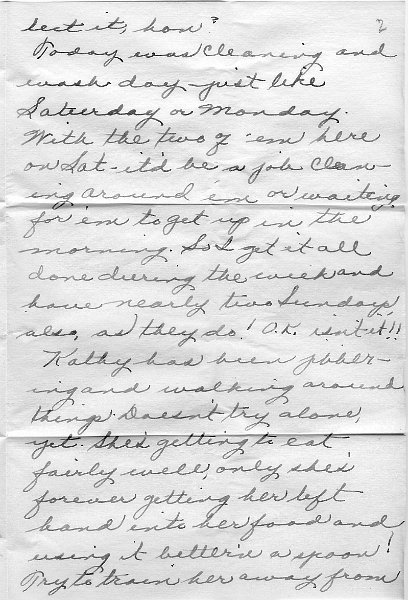 lect it, hon? 2
Today was cleaning and
wash day - just like
Saturday or Monday.
With the two of 'em here
on Sat - it'd be a job clean-
ing around 'em or waiting
for 'em to get up in the
morning. So I get it all
done during the week and
have nearly two Sundays
also, as they do! O.K. isn't it!!
Kathy has been jabber-
ing and walking around
things. Doesn't try alone,
yet. She's getting to eat
fairly well, only she's
forever getting her left
hand into her food and
using it better'n a spoon!
Try to train her away from